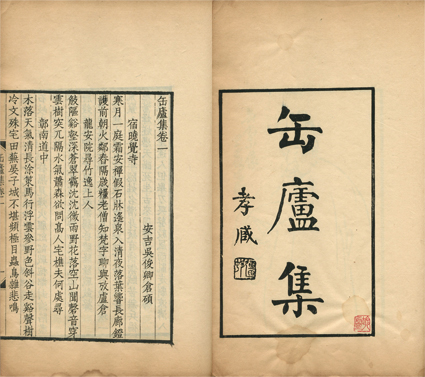 缶廬集
孝臧
缶廬集卷一
安吉吳俊卿倉碩
宿曉覺寺
寒月一庭霜安禪假石牀遠泉入清夜落葉響長廊鐙
護前朝火鄰舂隔歲糧老僧知梵字聊與攷盧倉
龍安院尋竹逸上人
隔谿壑深蒼翠霧沈沈微雨野花落空山聞磬音穿
雲樹突兀隔水氣蕭森欲問高人宅樵夫何處尋
鄣南道中
木落天氣清長涂策馬行浮雲參野色斜谷走谿聲樹
冷文殊宅田蕪晏子城不堪頻極目蟲鳥雜悲鳴